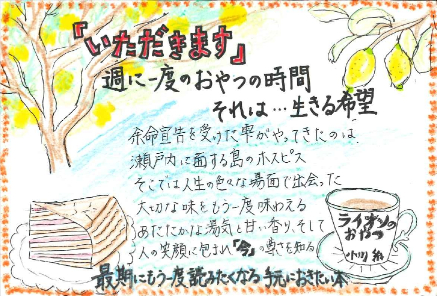 『いただきます』
週に一度のおやつの時間
それは…生きる希望
余命宣告を受けた雫がやってきたのは
瀬戸内に面する島のホスピス
そこでは人生の色々な場面で出会った
大切な味をもう一度味わえる
あたたかな湯気と甘い香り、そして
人の笑顔に包まれ『今』の尊さを知る
ライオンの
おやつ
小川 糸
最期にもう一度読みたくなる手元におきたい本